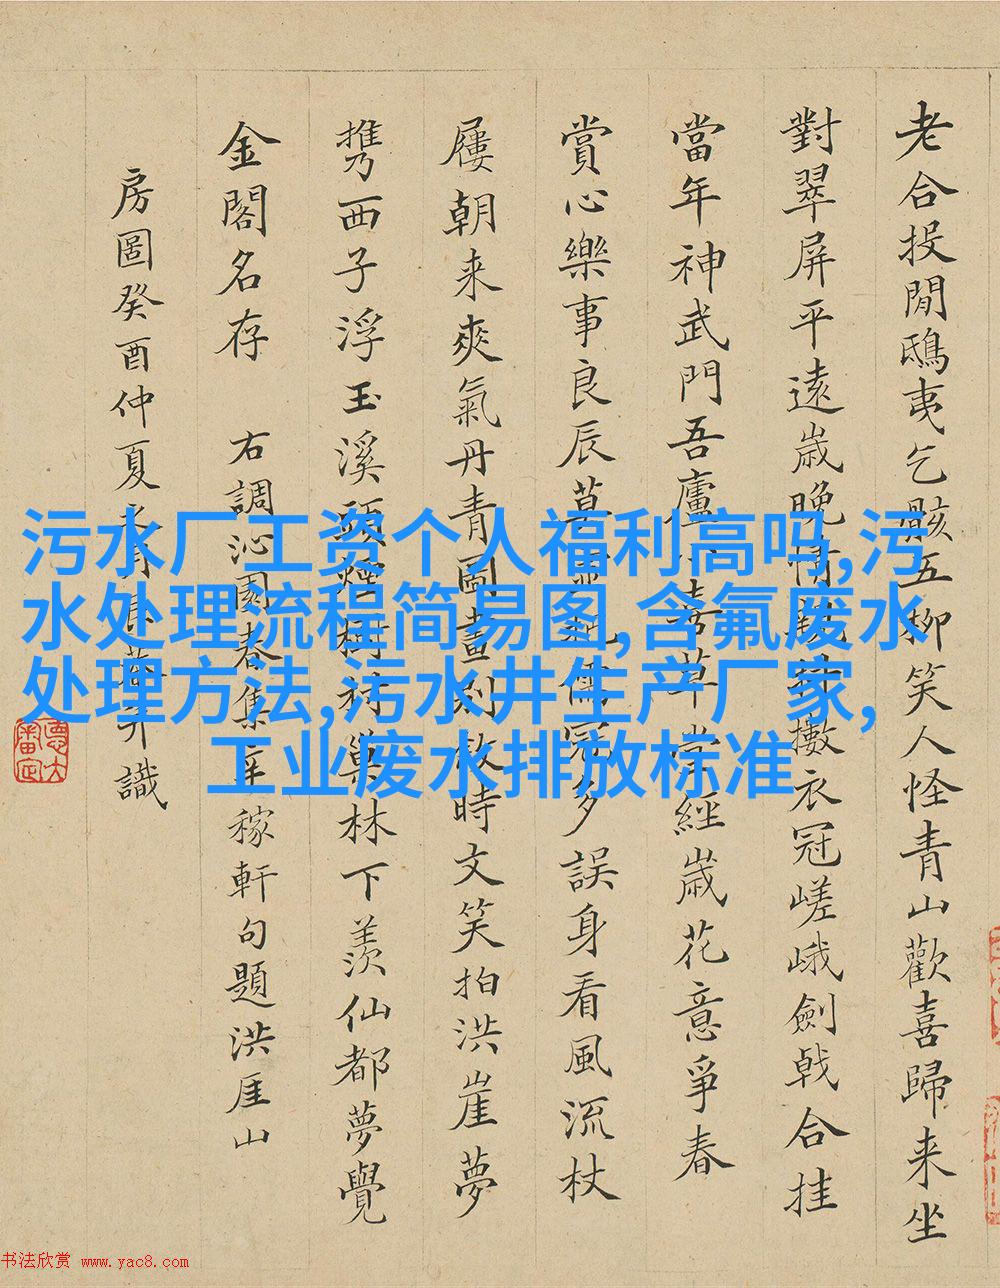 老合投閒鴟夷乞骸五柳笑人怪青山歡喜歸来坐
對翠屏平遠歲晚情衣冠嵯峨劍戟合挂
當年神武門吾廬喜草堂經歲花意爭春
賞心樂事良辰莫儒冠多誤身看風流杖
屨朝来爽氣丹青圖畫時文笑拍洪崖夢
携西子浮玉溪頭煙樹村巢林下羨仙都夢覺
金閣名存 右調沁園春集辛稼軒句題洪厓山
房圖癸酉仲夏識
污水厂工资个人福利高吗,污
水处理流程简易图,含氟废水
处理方法,污水井生产厂家,
工业废水排放标准
书法欣赏 www.yac8.com